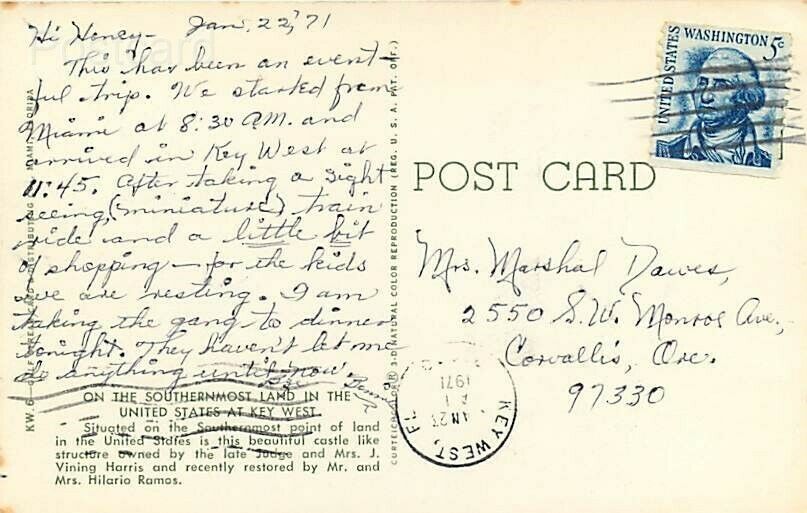 Hi Honey- Jan. 22, '71
This has been an event-
ful trip. We started from
Miami at 8:30 A.M. and
arrived in Key West at
11:45. After taking a sight
seeing (miniature) train
ride and a little bit
of shopping - for the kids
we are resting. I am
taking the gang to dinner
tonight. They haven't let me
do anything until now.
ON THE SOUTHERNMOST LAND IN THE
UNITED STATES AT KEY WEST.
Situated on the Southernmost point of land
in the United States is this beautiful castle like
structure owned by the late Judge and Mrs. J.
Vining Harris and recently restored by Mr. and
Mrs. Hilario Ramos.
CURTEICHCOLOR® 3-D NATURAL COLOR REPRODUCTION (REG. U. S. A. PAT. OFF.)
POST CARD
UNITED STATES
WASHINGTON 5c
Mrs. Marshal Dawes,
2550 S.W. Monroe Ave.,
Corvallis, Ore.
97330
KEY WEST, FL
JAN 23
1971
Postcard